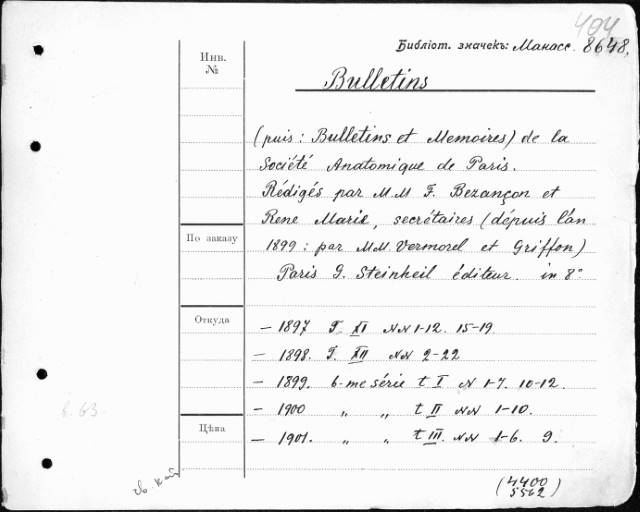 404
Библіот. значекъ: Манасс. 8648.
Инв.
№
Bulletins
(puis: Bulletins et Memoires) de la
Société Anatomique de Paris.
Rédigés par M M F. Bezançon et
Rene Marie, secrétaires (dépuis l'an
По заказу
1899: par M M. Vermorel et Griffon)
Paris G. Steinheil éditeur in 8°
Откуда
— 1897 T. XI NN 1-12. 15-19.
— 1898. T. XII NN 2-22
— 1899. 6-me série t I N 1-7. 10-12.
— 1900 „ „ t II NN 1-10.
Цѣна
— 1901. „ „ t III. NN 1-6. 9.
(4400
5562)